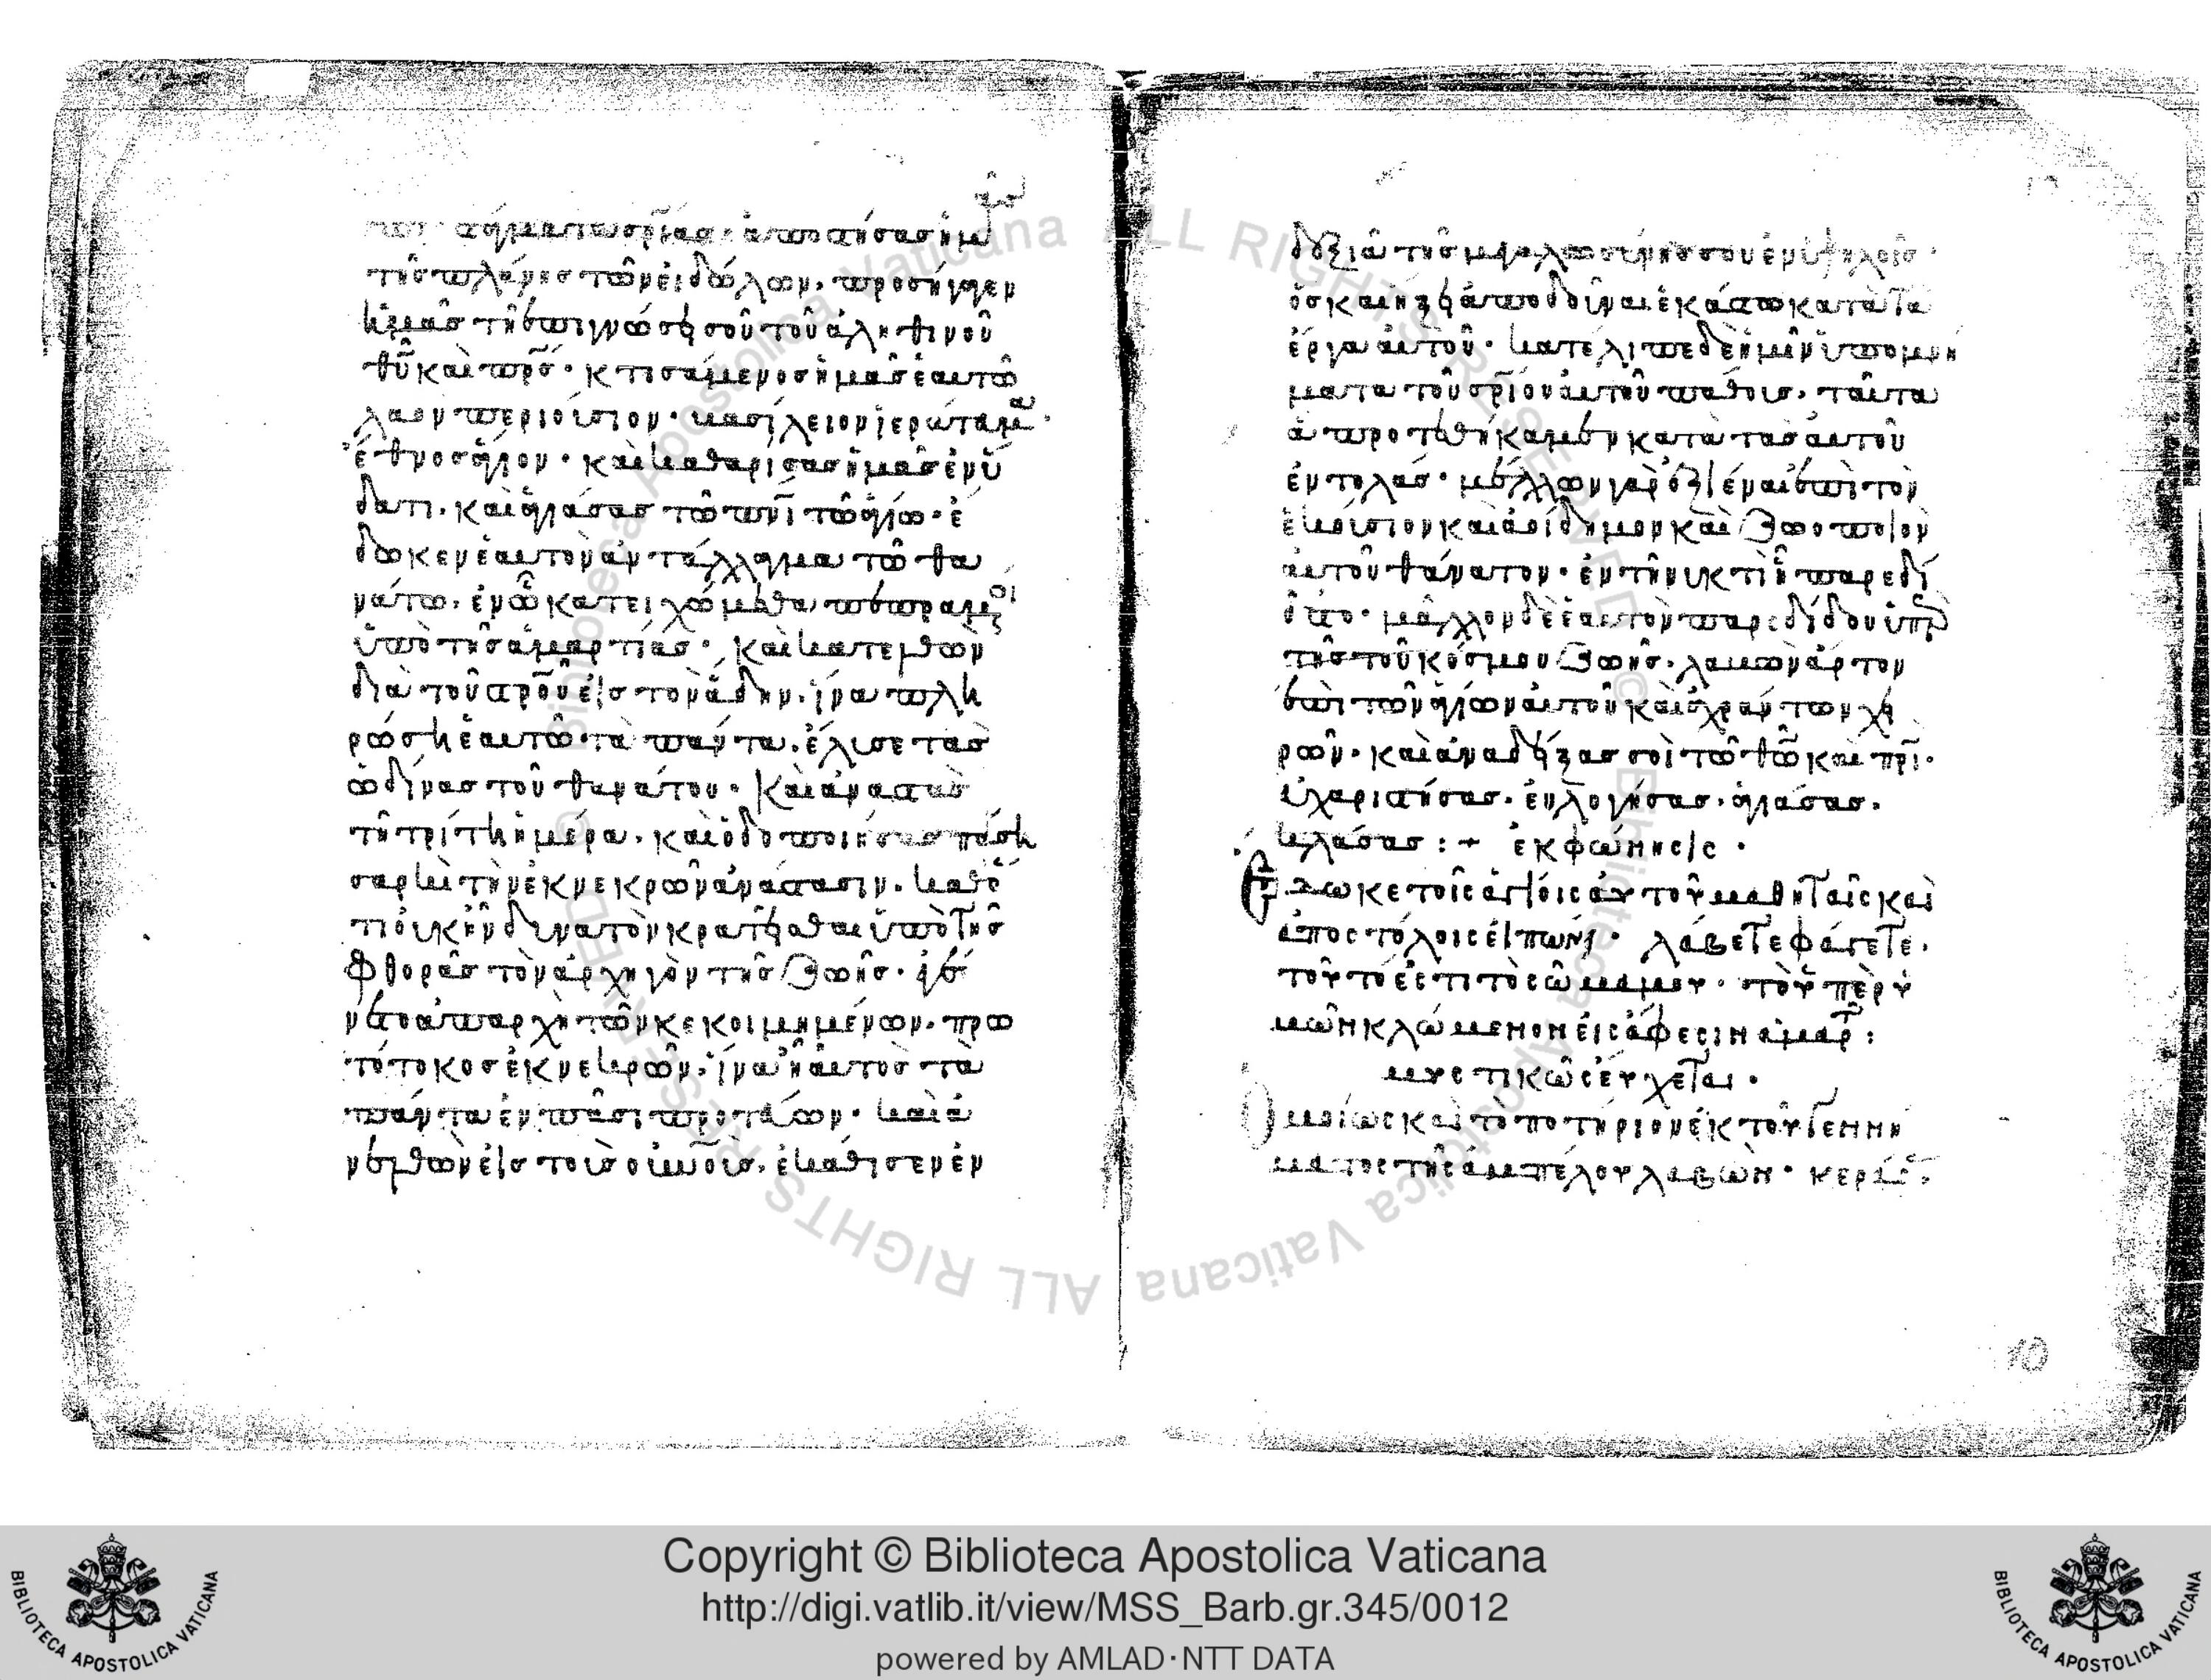 στήματα σρίας· ἀποστήσας ἡμ
τῆς πλάνης τῶν εἰδώλων, προσήγαγεν
ἡμᾶς τῆ ἐπιγνώσει σοῦ τοῦ ἀληθινοῦ
θῦ καὶ πρς· κτισάμενος ἡμᾶς ἑαυτῶ
λαὸν περιούσιον· βασίλειον ἱεράτευμα·
ἔθνος ἅγιον· καὶ καθαρίσας ἡμᾶς ἐν ὕ
δατι. καὶ ἁγιάσας τῶ πνὶ τῶ ἁγίω· ἔ
δωκεν ἑαυτὸν ἀντάλλαγμα τῶ θα
νάτω. ἐν ὧ κατειχόμεθα πεπραμένοι
ὑπὸ τῆς ἁμαρτίας· καὶ κατελθὼν
διὰ τοῦ στροῦ εἰς τὸν ἅδην. ἵνα πλη
ρώση ἑαυτῶ τὰ πάντα. ἔλυσε τὰς
ὠδίνας τοῦ θανάτου. καὶ ἀναστὰς
τῆ τρίτη ἡμέρα. καὶ ὁδοποιήσας πάση
σαρκὶ τὴν ἐκ νεκρῶν ἀνάστασιν. καθό
τι οὐκ ἦν δυνατὸν κρατεῖσθαι ὑπὸ τῆς
φθορᾶς τὸν ἀρχηγὸν τῆς ζωῆς. ἐγέ
νετο ἀπαρχὴ τῶν κεκοιμημένων. πρω
τότοκος ἐκ νεκρῶν. ἵνα ἦ αὐτὸς τὰ
πάντα ἐν πᾶσι πρωτεύων. καὶ ἀ
νελθὼν εἰς τοὺς οὐνοὺς. ἐκάθισεν ἐν
δεξιᾶ τῆς μεγαλωσύνης σου ἐν ὑψηλοῖς·
ὃς καὶ ἥξει ἀποδοῦναι ἑκάστω κατὰ τὰ
ἔργα αὐτοῦ· κατέλιπε δὲ ἡμῖν ὑπομνή
ματα τοῦ σρίου αὐτοῦ πάθους. ταῦτα
ἃ προτεθήκαμεν κατὰ τὰς αὐτοῦ
ἐντολάς· μέλλων γὰρ ἐξιέναι ἐπὶ τὸν
ἑκούσιον καὶ ἀοίδημον καὶ ζωοποιὸν
αὐτοῦ θάνατον. ἐν τῆ νυκτὶ ἧ παρεδί
δοτο. μᾶλλον δὲ ἑαυτὸν παρεδίδου ὑπὲρ
τῆς τοῦ κόσμου ζωῆς. λαβὼν ἄρτον
ἐπὶ τῶν ἁγίων αὐτοῦ καὶ ἀχράντων χει
ρῶν. καὶ ἀναδείξας σοὶ τῶ θῶ καὶ πρὶ.
εὐχαριστήσας. εὐλογήσας. ἁγιάσας.
κλάσας :+ ἐκφώνησις ·
Ἔδωκε τοῖς ἁγίοις αὐτοῦ μαθηταῖς καὶ
ἀποστόλοις εἰπὼν· λάβετε φάγετε.
τοῦτό ἐστι τὸ σῶμα μου. τὸ ὑπὲρ ὑ
μῶν κλώμενον εἰς ἄφεσιν ἁμαρτ:
μυστικῶς εὔχεται ·
Ὁμοίως καὶ τὸ ποτήριον ἐκ τοῦ γεννή
ματος τῆς ἀμπέλου λαβὼν. κεράς.
10
Copyright © Biblioteca Apostolica Vaticana
http://digi.vatlib.it/view/MSS_Barb.gr.345/0012
powered by AMLAD·NTT DATA
BIBLIOTECA APOSTOLICA VATICANA
BIBLIOTECA APOSTOLICA VATICANA
© Biblioteca Apostolica Vaticana ALL RIGHTS RESERVED © Biblioteca Apostolica Vaticana ALL RIGHTS RESERVED